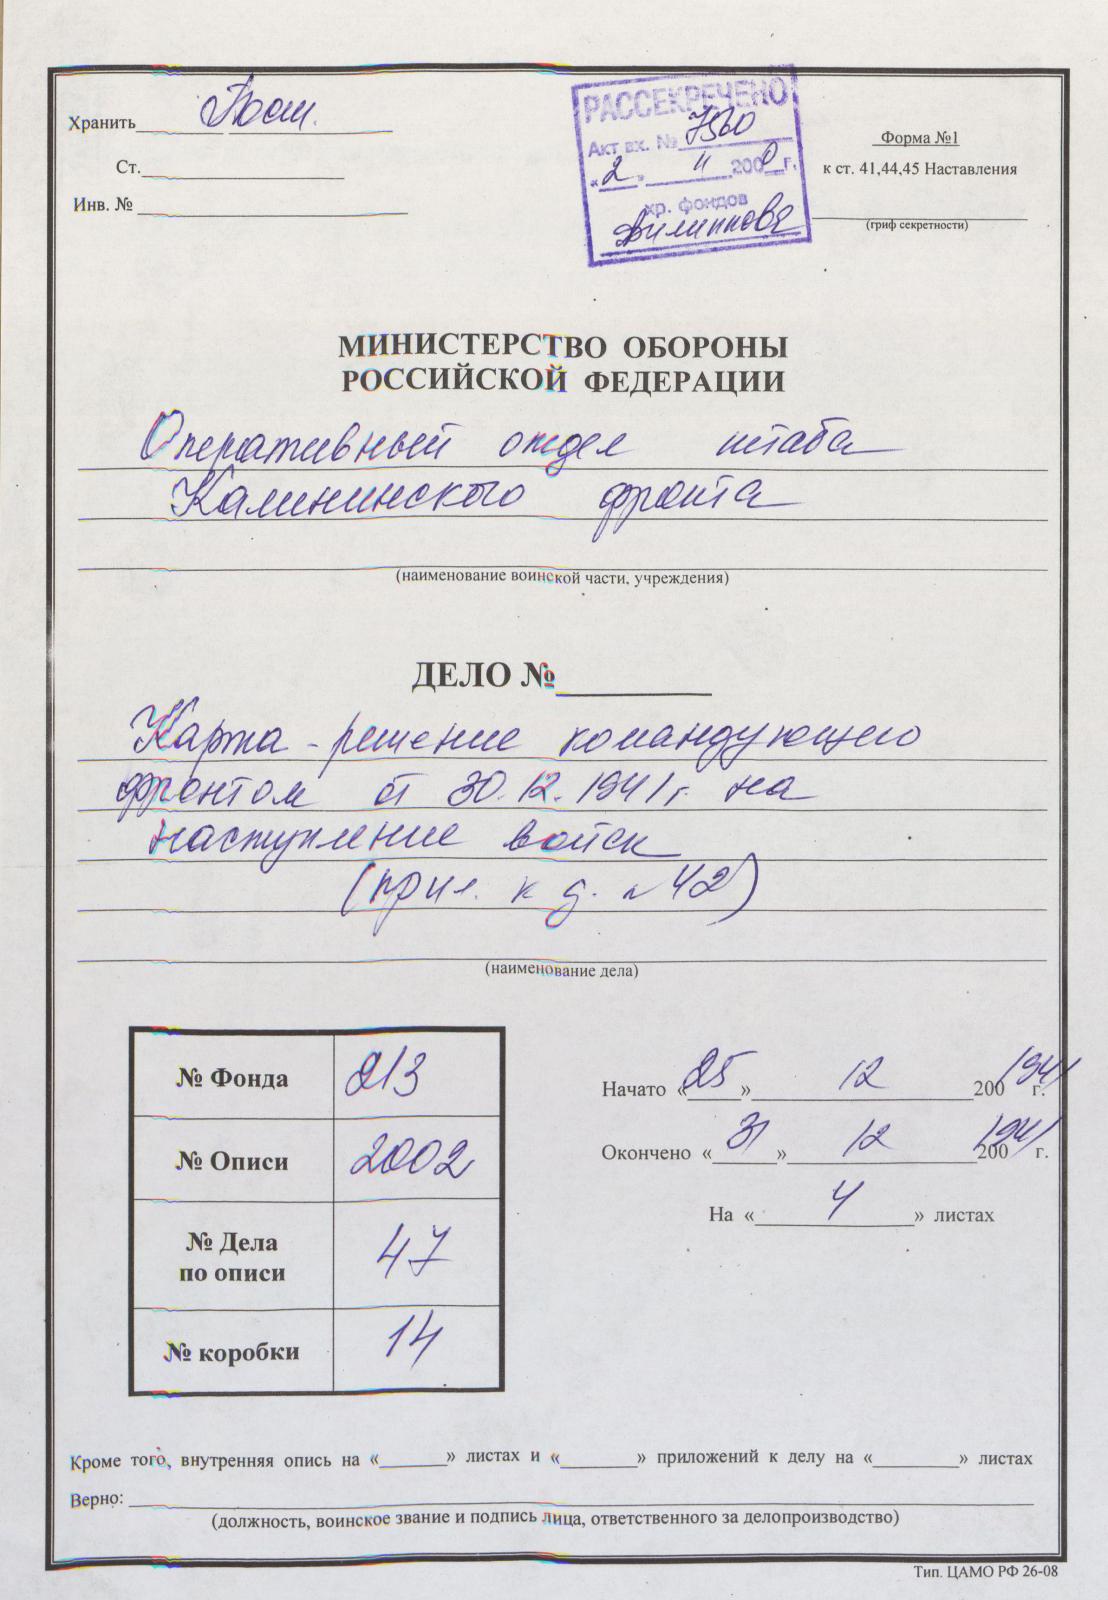 Хранить Пост.
Ст.
Инв. №
РАССЕКРЕЧЕНО
Акт вх. №
«2» 11 2000 г.
хр. фондов
Филиппова
Форма №1
к ст. 41,44,45 Наставления
(гриф секретности)
МИНИСТЕРСТВО ОБОРОНЫ
РОССИЙСКОЙ ФЕДЕРАЦИИ
Оперативный отдел штаба
Калининского фронта
(наименование воинской части, учреждения)
ДЕЛО №
Карта-решение командующего
фронтом от 30.12.1941г. на
наступление войск
(прил. к д. №42)
(наименование дела)
№ Фонда 213
№ Описи 2002
№ Дела
по описи 47
№ коробки 14
Начато «25» 12 200 1941 г.
Окончено «31» 12 200 1941 г.
На « 4 » листах
Кроме того, внутренняя опись на « » листах и « » приложений к делу на « » листах
Верно:
(должность, воинское звание и подпись лица, ответственного за делопроизводство)
Тип. ЦАМО РФ 26-08